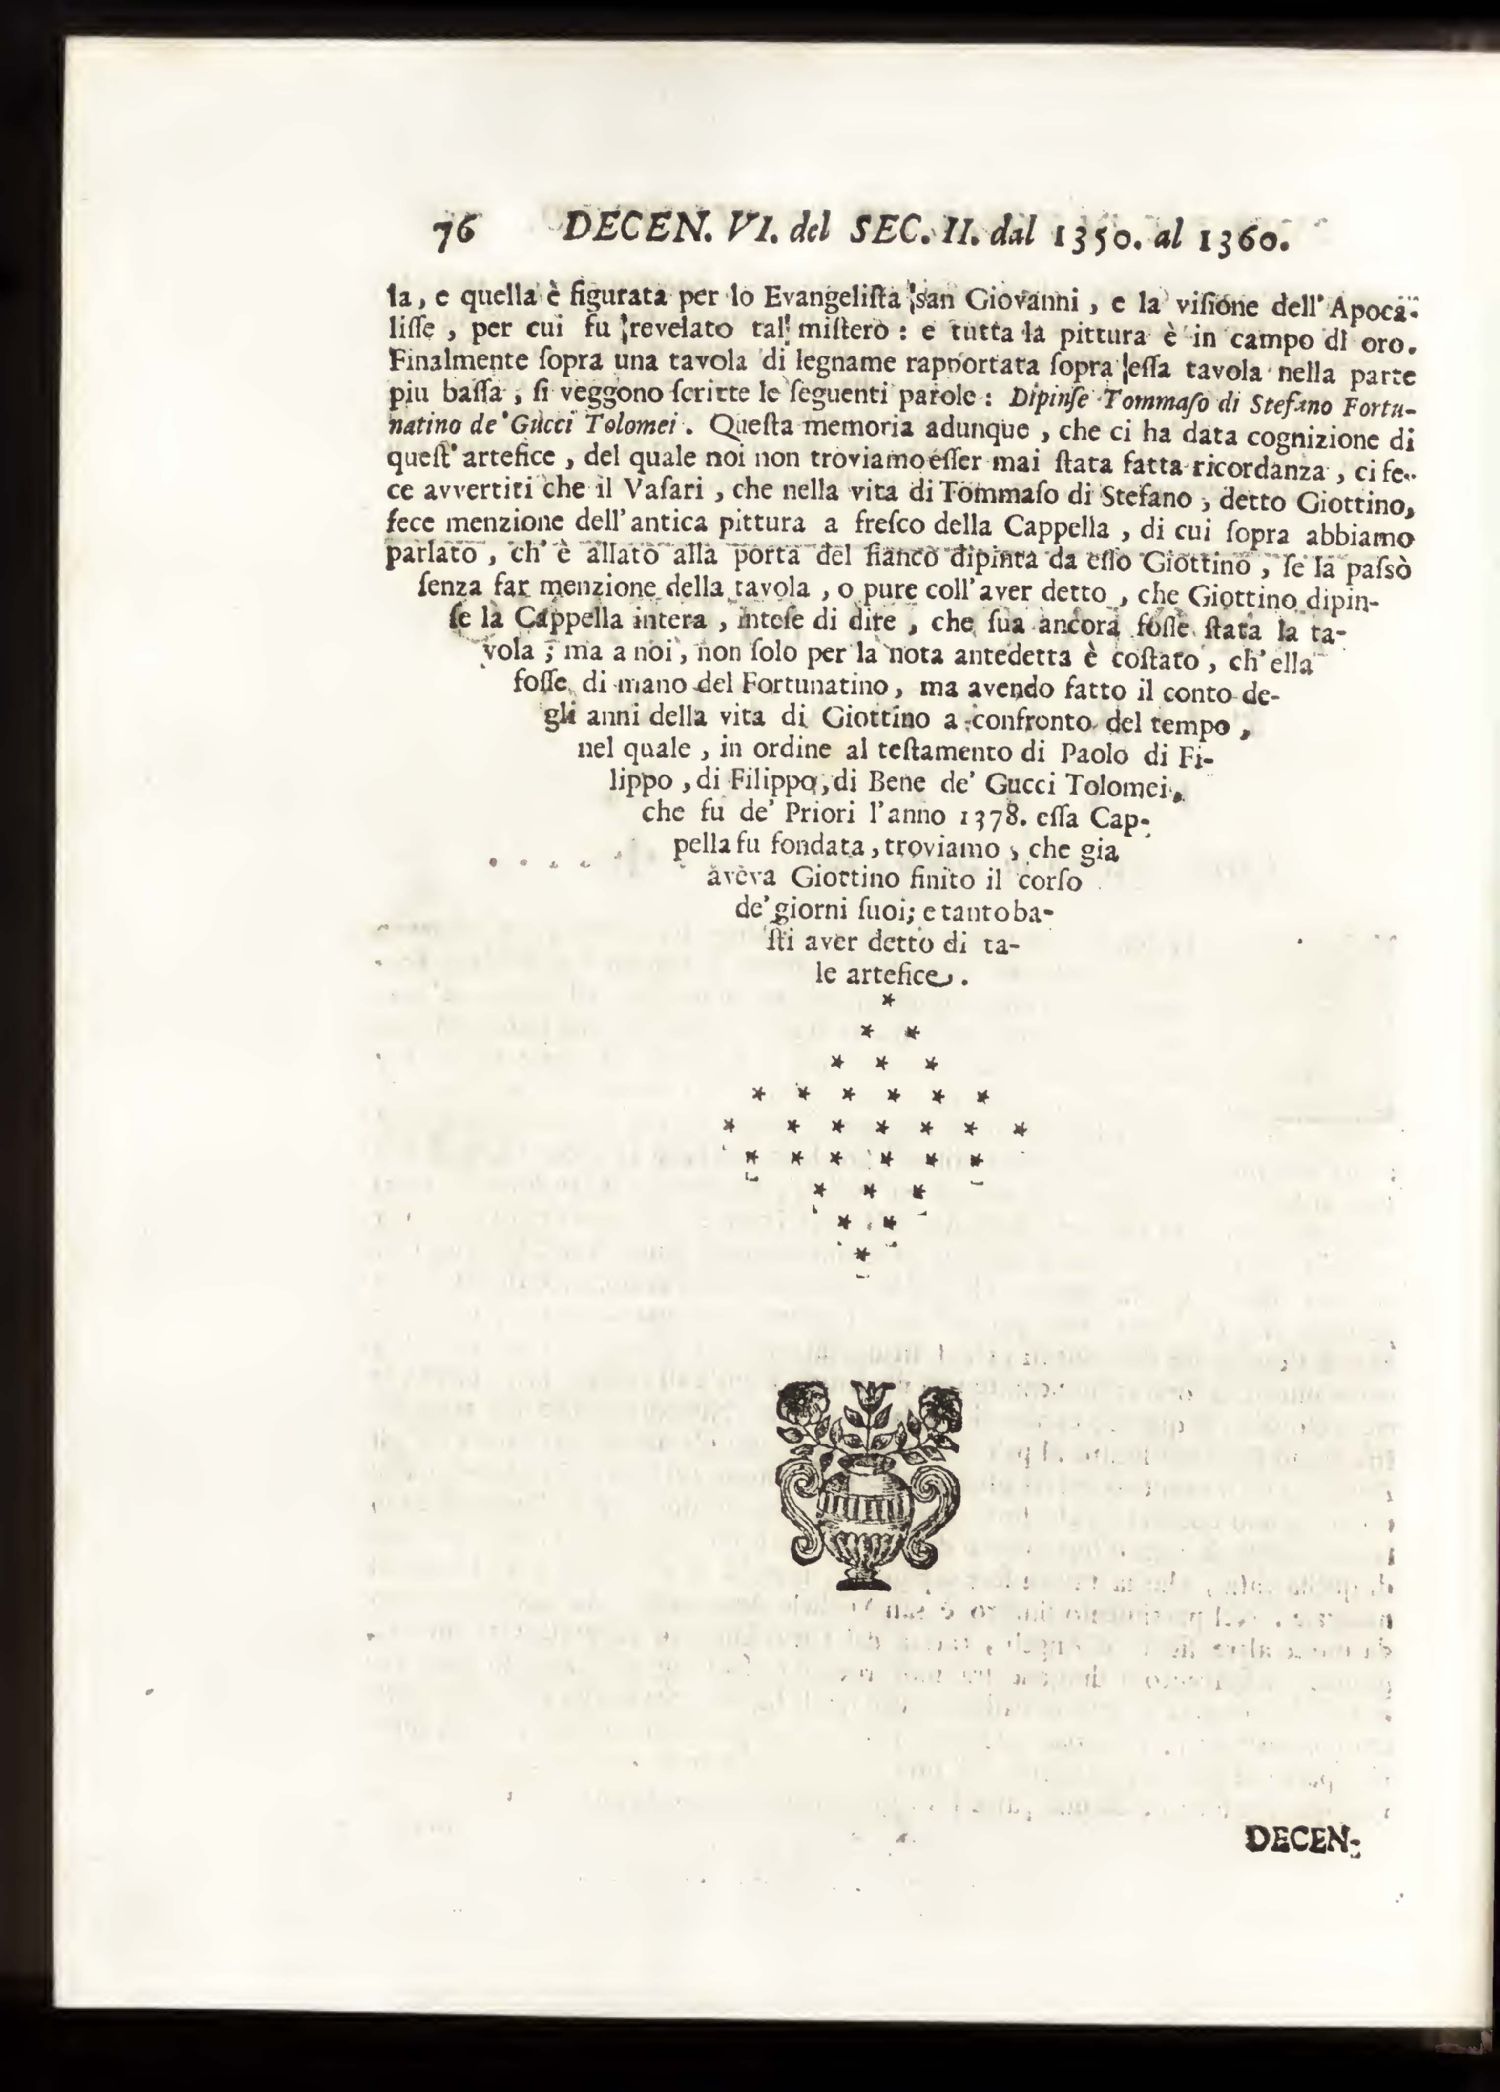 76 DECEN. VI. del SEC. II. dal 1350. al 1360.
la, e quella è figurata per lo Evangeliſta san Giovanni, e la viſione dell' Apoca-
liſſe, per cui fu revelato tal miſtero: e tutta la pittura è in campo di oro.
Finalmente ſopra una tavola di legname rapportata ſopra eſſa tavola nella parte
piu baſſa, ſi veggono ſcritte le ſeguenti parole: Dipinſe Tommaſo di Stefano Fortu-
natino de' Gucci Tolomei. Queſta memoria adunque, che ci ha data cognizione di
queſt' artefice, del quale noi non troviamo eſſer mai ſtata fatta ricordanza, ci fe-
ce avvertiti che il Vaſari, che nella vita di Tommaſo di Stefano, detto Giottino,
fece menzione dell' antica pittura a freſco della Cappella, di cui ſopra abbiamo
parlato, ch' è allato alla porta del fianco dipinta da eſſo Giottino, ſe la paſsò
ſenza far menzione della tavola, o pure coll' aver detto, che Giottino dipin-
ſe la Cappella intera, inteſe di dire, che ſua ancora foſſe ſtata la ta-
vola; ma a noi, non ſolo per la nota antedetta è coſtato, ch' ella
foſſe di mano del Fortunatino, ma avendo fatto il conto de-
gli anni della vita di Giottino a confronto del tempo,
nel quale, in ordine al teſtamento di Paolo di Fi-
lippo, di Filippo, di Bene de' Gucci Tolomei,
che fu de' Priori l' anno 1378. eſſa Cap-
pella fu fondata, troviamo, che gia
aveva Giottino finito il corſo
de' giorni ſuoi; e tanto ba-
ſti aver detto di ta-
le artefice.
*
* *
* * *
* * * * * *
* * * * * * *
* * * * * *
* * *
* *
*
DECEN-